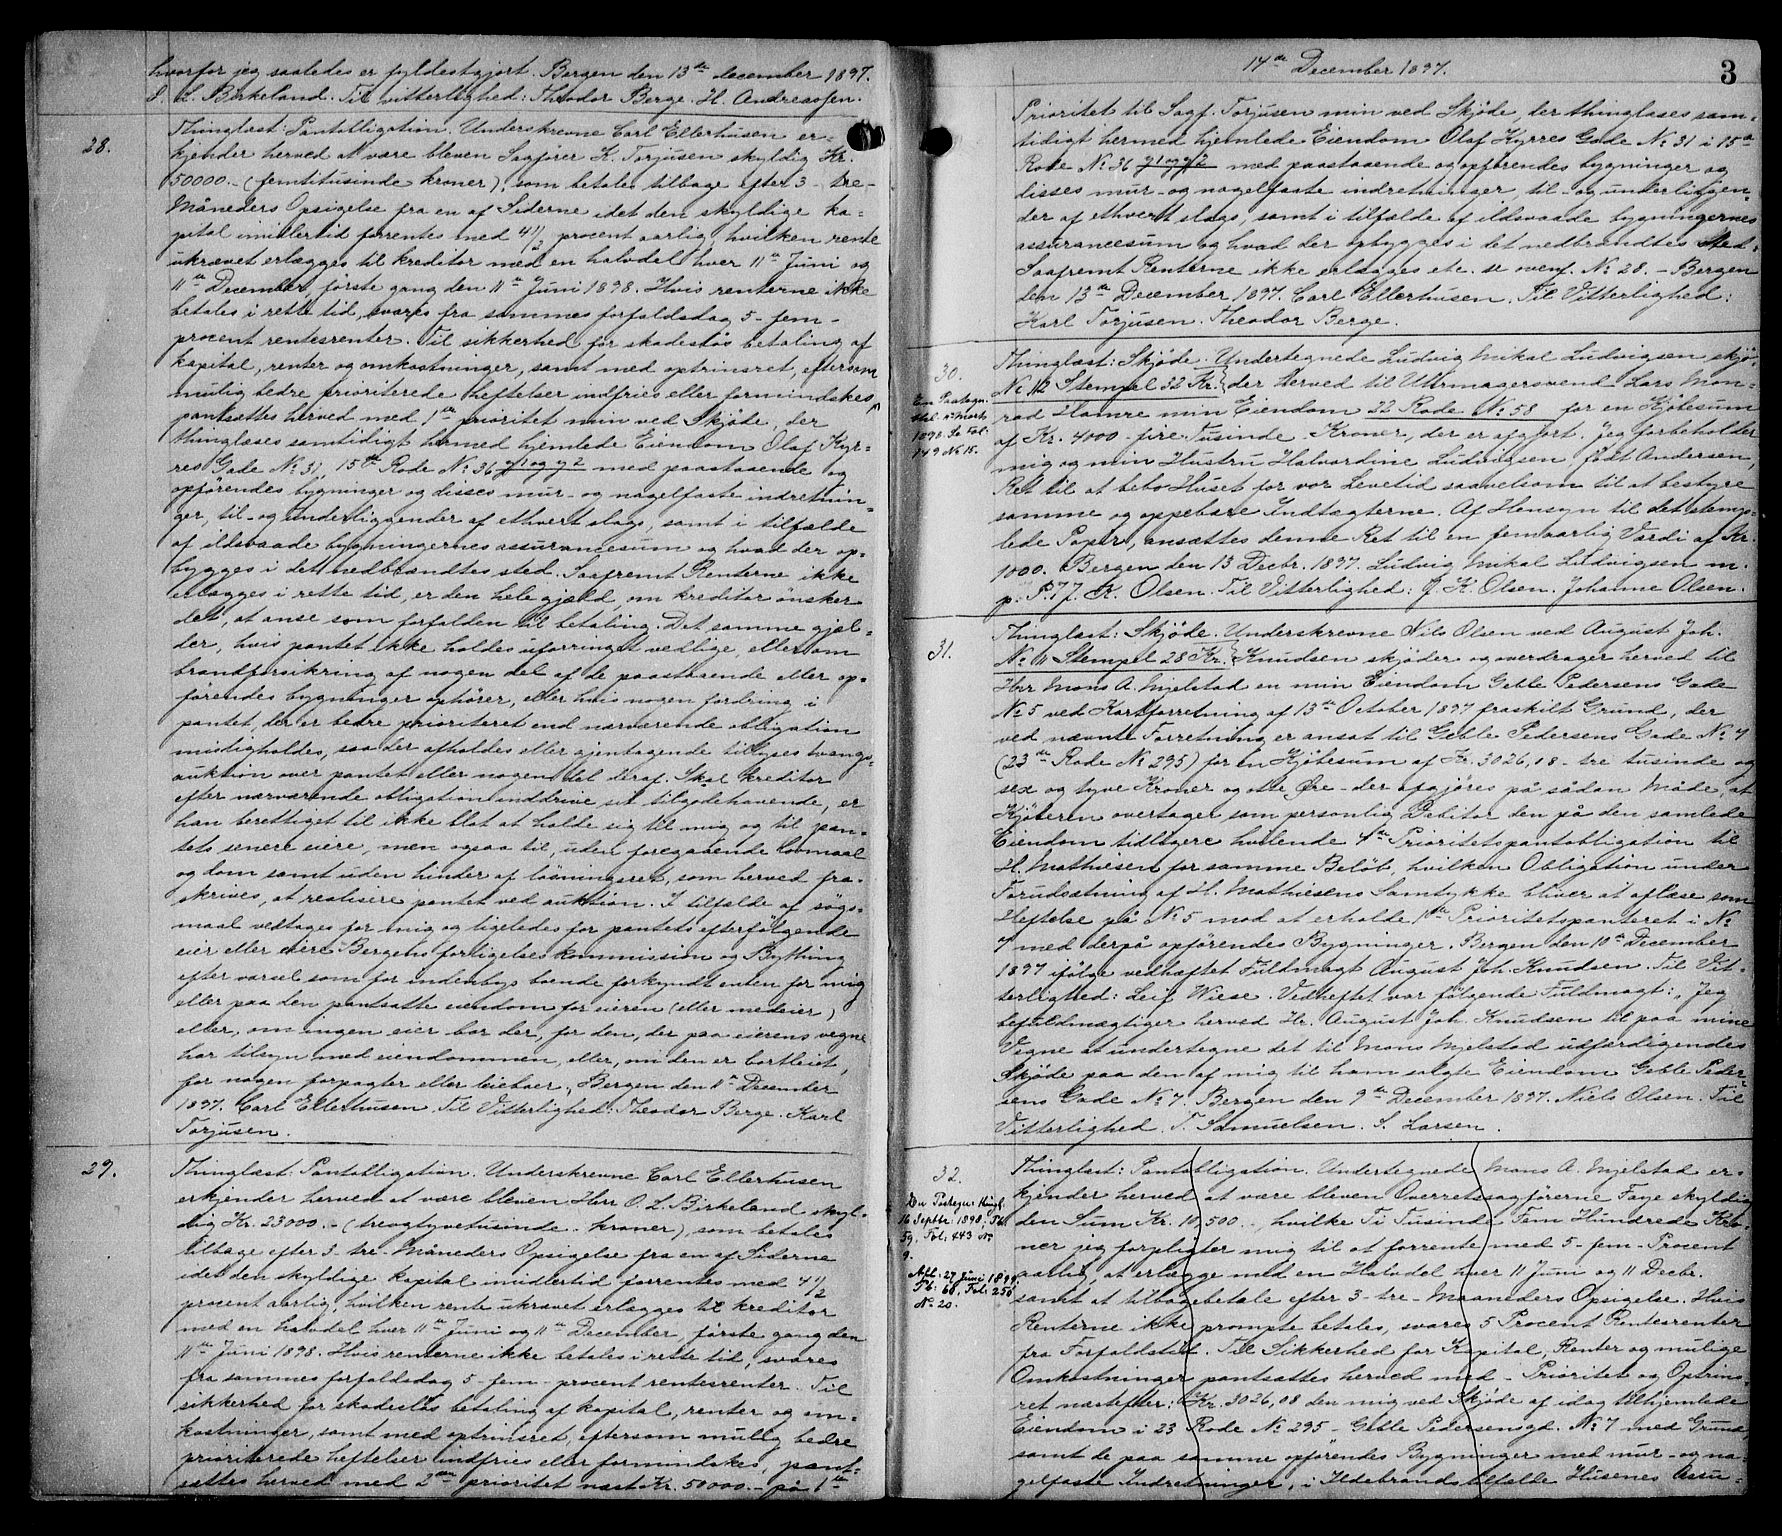 hvorfor jeg saaledes er fyldestgjort. Bergen den 13de december 1897.
O. L. Birkeland. Til vitterlighed: Theodor Berge. H. Andreassen.
28.
Thinglæst: Pantobligation. Underskrevne Carl Ellerhusen er-
kjender herved at være bleven Sagfører K. Torjusen skyldig Kr.
50000.- (femtitusinde kroner), som betales tilbage efter 3 - tre -
Måneders Opsigelse fra en af Siderne idet den skyldige ka-
pital imidlertid forrentes med 4 1/2 procent aarlig, hvilken rente
ukrævet erlægges til kreditor med en halvdel hver 11te Juni og
11te December, første gang den 11te Juni 1898. Hvis renterne ikke
betales i rette tid, svares fra sammes forfaldsdag 5 - fem -
procent rentesrenter. Til sikkerhed for skadesløs betaling af
kapital, renter og omkostninger, samt med optrinsret, eftersom
mulig bedre prioriterede heftelser indfries eller formindskes,
pantsættes herved med 1ste prioritet min ved Skjøde, der
thinglæses samtidigt hermed hjemlede Eiendom Olaf Kyr-
res Gade No 31, 15de Rode No 36 g1 og g2 med paastaaende og
opførendes bygninger og disses mur- og nagelfaste indretnin-
ger, til- og underliggender af ethvert slags, samt i tilfælde
af ildsvaade bygningernes assurancesum og hvad der op-
bygges i det nedbrændtes sted. Saafremt Renterne ikke
erlægges i rette tid, er den hele gjæld, om kreditor ønsker
det, at anse som forfalden til betaling. Det samme gjæl-
der, hvis pantet ikke holdes uforringet vedlige, eller om
brandforsikring af nogen del af de paastaaende eller op-
førendes bygninger ophører, eller hvis nogen fordring i
pantet, der er bedre prioriteret end nærværende obligation
misligholdes, saa der afholdes eller gjentagende tillyses tvangs-
auktion over pantet eller nogen del deraf. Skal kreditor
efter nærværende obligation inddrive sit tilgodehavende, er
han berettiget til ikke blot at holde sig til mig og til pan-
tets senere eiere, men ogsaa til, uden foregaaende lovmaal
og dom samt uden hinder af løsningsret, som herved fra-
skrives, at realisere pantet ved auktion. I tilfælde af søgs-
maal vedtages for mig og ligeledes for pantets efterfølgende
eier eller eiere Bergens forligelseskommission og Bything
efter varsel som for indenbys boende forkyndt enten for mig
eller paa den pantsatte eiendom for eieren (eller medeier)
eller, om ingen eier bor der, for den, der paa eierens vegne
har tilsyn med eiendommen, eller, om den er bortleiet,
for nogen forpagter eller leieboer. Bergen den 11te December
1897. Carl Ellerhusen Til Vitterlighed: Theodor Berge. Karl
Torjusen.
29.
Thinglæst: Pantobligation. Underskrevne Carl Ellerhusen
erkjender herved at være bleven Herr O. L. Birkeland skyl-
dig Kr. 23000.- (treogtyvetusinde - kroner), som betales
tilbage efter 3 - tre - Måneders Opsigelse fra en af Siderne
idet den skyldige kapital imidlertid forrentes med 4 1/2
procent aarlig, hvilken rente ukrævet erlægges til kreditor
med en halvdel hver 11te Juni og 11te December, første gang den
11te Juni 1898. Hvis renterne ikke betales i rette tid, svares
fra sammes forfaldsdag 5 - fem - procent rentesrenter. Til
sikkerhed for skadesløs betaling af kapital, renter og om-
kostninger, samt med optrinsret, eftersom mulig bedre
prioriterede heftelser indfries eller formindskes, pant-
sættes herved med 2den prioritet næst Kr. 50000.- på 1ste
14de December 1897.
3
Prioritet til Sagf. Torjusen min ved Skjøde, der thinglæses sam-
tidigt hermed hjemlede Eiendom Olaf Kyrres Gade No 31 i 15de
Rode No 36 g1 og g2 med paastaaende og opførendes bygninger og
disses mur- og nagelfaste indretninger, til- og underliggen-
der af ethvert slags, samt i tilfælde af ildsvaade bygningernes
assurancesum og hvad der opbygges i det nedbrændtes Sted.
Saafremt Renterne ikke erlægges etc. se ovenf. No 28. - Bergen
den 13de December 1897. Carl Ellerhusen. Til Vitterlighed:
Karl Torjusen. Theodor Berge.
30.
1898. Se Fol.
149 No 15.
Thinglæst: Skjøde. Undertegnede Ludvig Mikal Ludvigsen skjø-
No 12 Stempel 32 Kr. der herved til Uhrmagersvend Lars Mon-
rad Hamre min Eiendom 22 Rode No 58 for en Kjøbesum
af Kr. 4000 - fire Tusinde - Kroner, der er afgjort. Jeg forbeholder
mig og min Hustru Halvardine Ludvigsen født Andersen,
Ret til at bebo Huset for vor Levetid saavelsom til at bestyre
samme og oppebære Indtægterne. Af Hensyn til det stemp-
lede Papir, ansættes denne Ret til en femaarlig Værdi af Kr.
1000. Bergen den 13 Decbr. 1897. Ludvig Mikal Ludvigsen m.
p. P. J. K. Olsen. Til Vitterlighed: J. K. Olsen. Johanne Olsen.
31.
Thinglæst: Skjøde. Underskrevne Nils Olsen ved August Joh.
No 11 Stempel 28 Kr. Knudsen skjøder og overdrager herved til
Herr Mons A. Mjelstad en min Eiendom Geble Pedersens Gade
No 5 ved Kartforretning af 13de October 1897 fraskilt Grund, der
ved nævnte Forretning er ansat til Geble Pedersens Gade No 7
(23de Rode No 295) for en Kjøbesum af Kr. 3026,08 - tre tusinde og
sex og tyve Kroner og otte Øre - der afgjøres på sådan Måde, at
Kjøberen overtager som personlig Debitor den på den samlede
Eiendom tidligere hvilende 4de Prioritetspantobligation til
H. Mathiesen for samme Beløb, hvilken Obligation under
Forudsætning af H. Mathiesens Samtykke bliver at aflæse som
Heftelse på No 5 mod at erholde 1ste Prioritetspanteret i No
7 med derpå opførendes Bygninger. Bergen den 10de December
1897 ifølge vedhæftet Fuldmagt August Joh. Knudsen. Til Vit-
terlighed: Leif Wiese. Vedheftet var følgende Fuldmagt: "Jeg
befuldmægtiger herved Hr. August Joh. Knudsen til paa mine
Vegne at undertegne det til Mons Mjelstad udfærdigendes
Skjøde paa den af mig til ham solgte Eiendom Geble Peder-
sens Gade No 7. Bergen den 9de December 1897. Niels Olsen. Til
Vitterlighed. T. Samuelsen. S. Larsen.
32.
16 Septbr. 1898, Pb.
59, Fol: 443 No
9.
Afl: 27 Juni 1899.
Pb: 60, Fol: 250
No 20.
Thinglæst: Pantobligation. Undertegnede Mons A. Mjelstad er-
kjender herved at være bleven Overretssagførerne Faye skyldig
den Sum Kr. 10,500 -, hvilke Ti Tusinde Fem Hundrede Kro-
ner jeg forpligter mig til at forrente med 5 - fem - Procent
aarlig, at erlægge med en Halvdel hver 11 Juni og 11 Decbr.
samt at tilbagebetale efter 3 - tre - Maaneders Opsigelse. Hvis
Renterne ikke prompte betales, svares 5 Procent Rentesrenter
fra Forfaldstid. Til Sikkerhed for Kapital, Renter og mulige
Omkostninger pantsættes herved med - Prioritet og Optrins-
ret næstefter: Kr. 3026,08 den mig ved Skjøde af idag tilhjemlede
Eiendom i 23 Rode No 295 - Geble Pedersensgd. No 7 med Grund
samt de paa samme opførendes Bygninger med mur- og na-
gelfaste Indretninger, i Ildebrandstilfælde Husenes Assu-